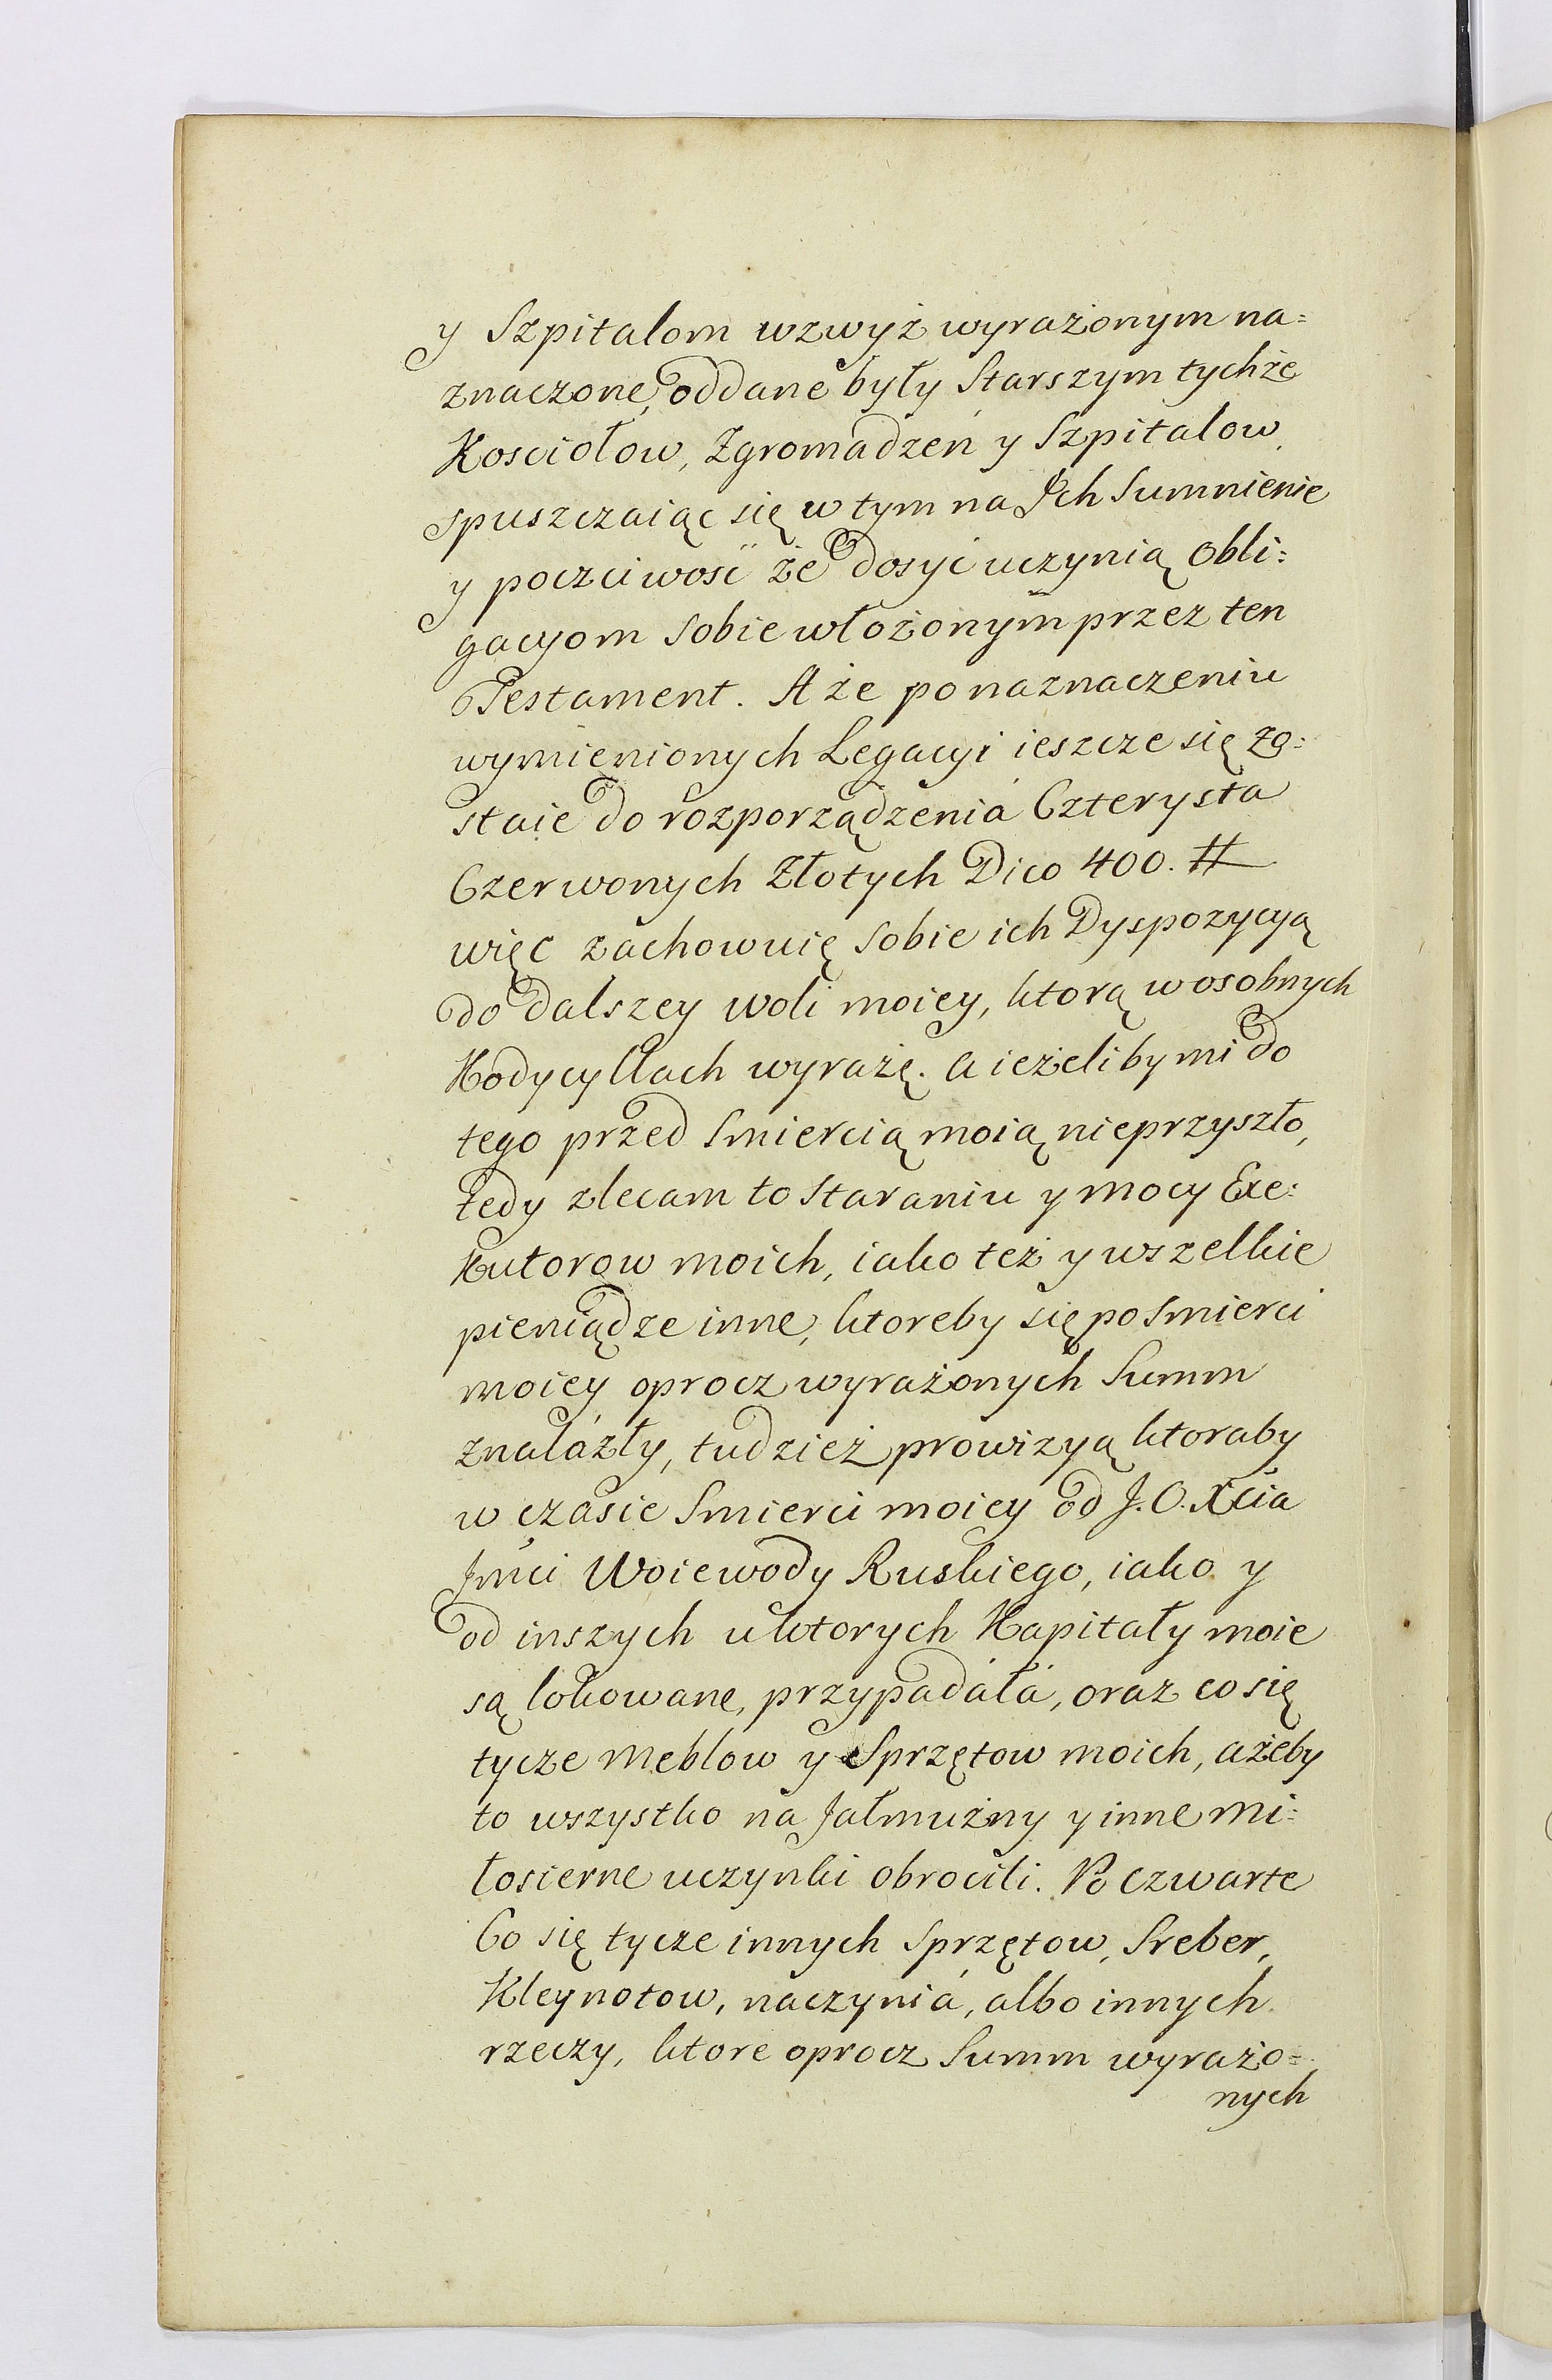 y Szpitalom wzwyż wyrażonym na=
znaczone, oddane były Starszym tychże
Kosciołow, Zgromadzeń y Szpitalow,
spuszczaiąc się w tym na Jch Sumnienie
y poczciwość że dosyć uczynią obli=
gacyom sobie włożonym przez ten
Testament. A że po naznaczeniu
wymienionych Legacyi ieszcze się zo=
staie do rozporządzenia Czterysta
Czerwonych Złotych Dico 400. #
więc zachowuię sobie ich Dyspozycyą
do dalszey woli moiey, ktorą w osobnych
Kodycyllach wyrażę. a ieżeliby mi do
tego przed Smiercią moią nieprzyszło,
tedy zlecam to staraniu y mocy Exe=
kutorow moich, iako też y wszelkie
pieniądze inne, ktoreby się po Smierci
moiey oprocz wyrażonych Summ
znalázły, tudzież prowizyą ktoraby
w czasie Smierci moiey od J. O. Xcia
Jmci Woiewody Ruskiego, iako y
od inszych u ktorych Kapitały moie
są lokowane, przypadáłá, oraz co się
tycze Meblow y Sprzętow moich, ażeby
to wszystko na Jałmużny y inne mi=
łosierne uczynki obrocili. Po czwarte
Co się tycze innych sprzętow, Sreber,
Kleynotow, naczyniá, albo innych
rzeczy, ktore oprocz Summ wyrażo=
nych